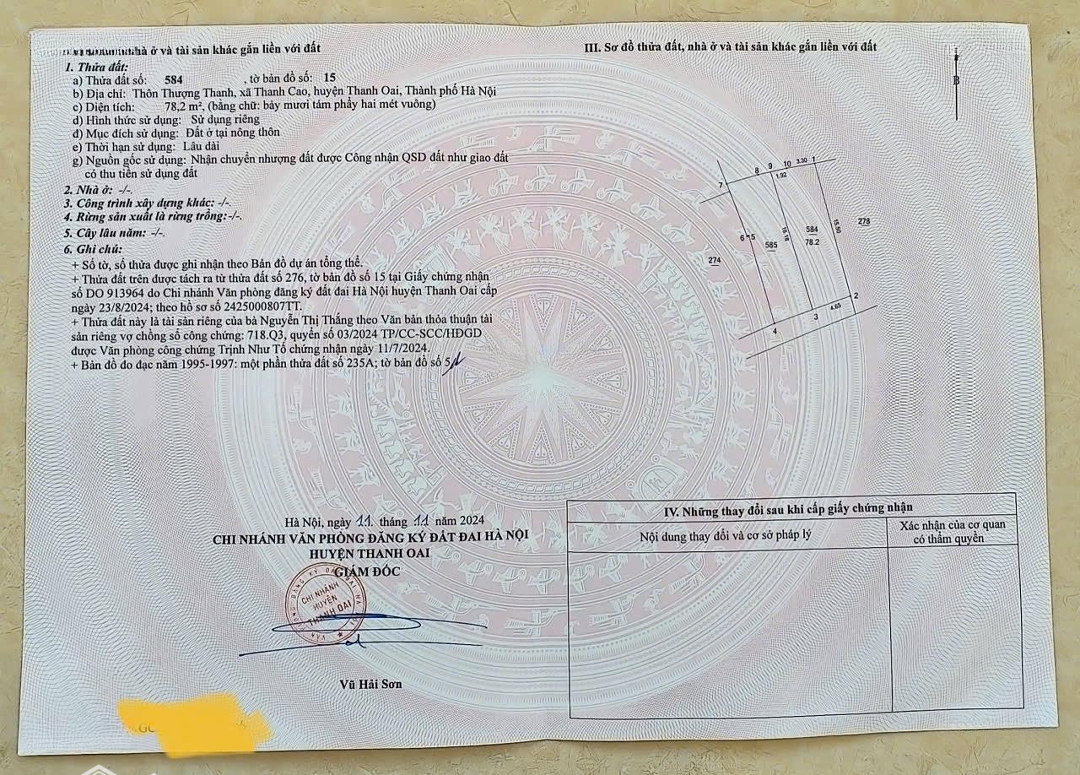 nhà ở và tài sản khác gắn liền với đất
1. Thửa đất:
a) Thửa đất số: 584 , tờ bản đồ số: 15
b) Địa chỉ: Thôn Thượng Thanh, xã Thanh Cao, huyện Thanh Oai, Thành phố Hà Nội
c) Diện tích: 78,2 m², (bằng chữ: bảy mươi tám phẩy hai mét vuông)
d) Hình thức sử dụng: Sử dụng riêng
đ) Mục đích sử dụng: Đất ở tại nông thôn
e) Thời hạn sử dụng: Lâu dài
g) Nguồn gốc sử dụng: Nhận chuyển nhượng đất được Công nhận QSD đất như giao đất
có thu tiền sử dụng đất
2. Nhà ở: -/-.
3. Công trình xây dựng khác: -/-.
4. Rừng sản xuất là rừng trồng:-/-.
5. Cây lâu năm: -/-.
6. Ghi chú:
+ Số tờ, số thửa được ghi nhận theo Bản đồ dự án tổng thể.
+ Thửa đất trên được tách ra từ thửa đất số 276, tờ bản đồ số 15 tại Giấy chứng nhận
số DO 913964 do Chi nhánh Văn phòng đăng ký đất đai Hà Nội huyện Thanh Oai cấp
ngày 23/8/2024; theo hồ sơ số 2425000807TT.
+ Thửa đất này là tài sản riêng của bà Nguyễn Thị Thắng theo Văn bản thỏa thuận tài
sản riêng vợ chồng số công chứng: 718.Q3, quyển số 03/2024 TP/CC-SCC/HĐGD
được Văn phòng công chứng Trịnh Như Tố chứng nhận ngày 11/7/2024.
+ Bản đồ đo đạc năm 1995-1997: một phần thửa đất số 235A; tờ bản đồ số 5
Hà Nội, ngày 11 tháng 11 năm 2024
CHI NHÁNH VĂN PHÒNG ĐĂNG KÝ ĐẤT ĐAI HÀ NỘI
HUYỆN THANH OAI
GIÁM ĐỐC
CHI NHÁNH
HUYỆN
THANH OAI
Vũ Hải Sơn
III. Sơ đồ thửa đất, nhà ở và tài sản khác gắn liền với đất
B
7 8 9 10 3.30 1
1.92
15.90
278
584
78.2
15.18
6 5
585
274
2
4.65
3
4
IV. Những thay đổi sau khi cấp giấy chứng nhận
Nội dung thay đổi và cơ sở pháp lý
Xác nhận của cơ quan
có thẩm quyền